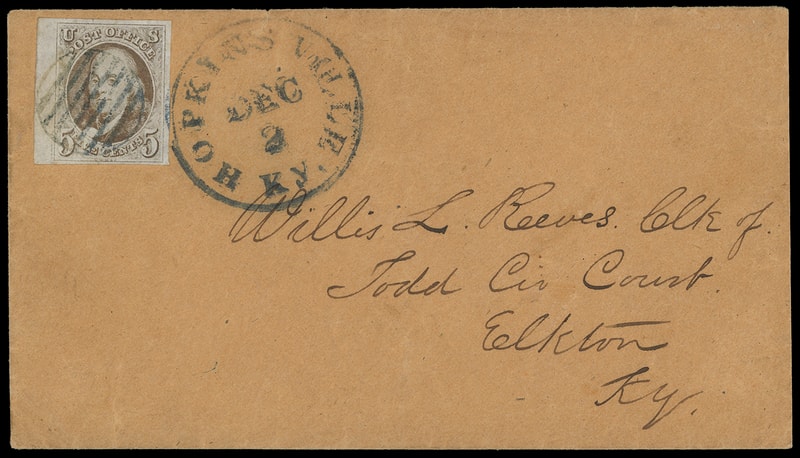 U S
POST OFFICE
5 FIVE CENTS 5
HOPKINSVILLE KY.
DEC
2
Willis L. Reeves. Clk of.
Todd Cir Court.
Elkton
Ky.